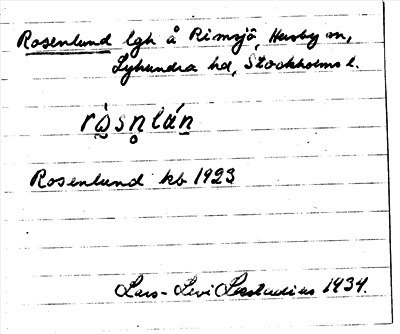 Rosenlund lgh å Rimsjö, Husby sn,
Lyhundra hd, Stockholms l.
rɷ̀sn̥lán
Rosenlund kb 1923
Lars-Levi Læstadius 1934.